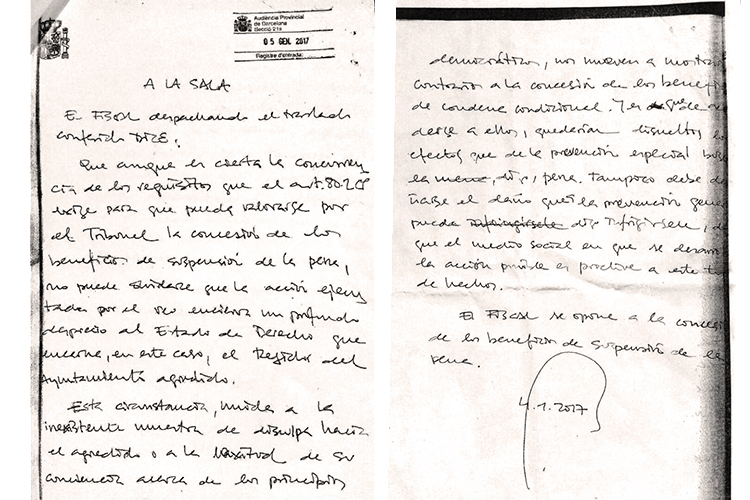 Audiència Provincial
de Barcelona
Secció 21a
05 GEN. 2017
Registre d'entrada:
A LA SALA
El Fiscal despachando el traslado
conferido DICE:
Que aunque es cierta la concurren
cia de los requisitos que el art. 80-2 CP
exige para que pueda valorarse por
el Tribunal la concesión de los
beneficios de suspensión de la pena,
no puede olvidarse que la acción ejecu
tada por el reo encierra un profundo
desprecio al Estado de Derecho que
encarna, en este caso, el Regidor del
Ayuntamiento agredido.
Esta circunstancia, unida a la
inexistente muestra de disculpa hacia
el agredido o a la laxitud de su
conciencia acerca de los principios
democráticos, nos mueven a mostrar
contrarios a la concesión de los benefi
de condena condicional. Y es que de
derse a ellos, quedarían disueltos lo
efectos que de la prevención especial bus
la mena, digo, pena. Tampoco debe d
ñarse el daño que a la prevención gener
pueda infringírsele digo infligírsele, d
que el medio social en que se desarro
la acción punible es proclive a este t
de hechos.
El Fiscal se opone a la conces
de los beneficios de suspensión de la
pena.
4.1.2017